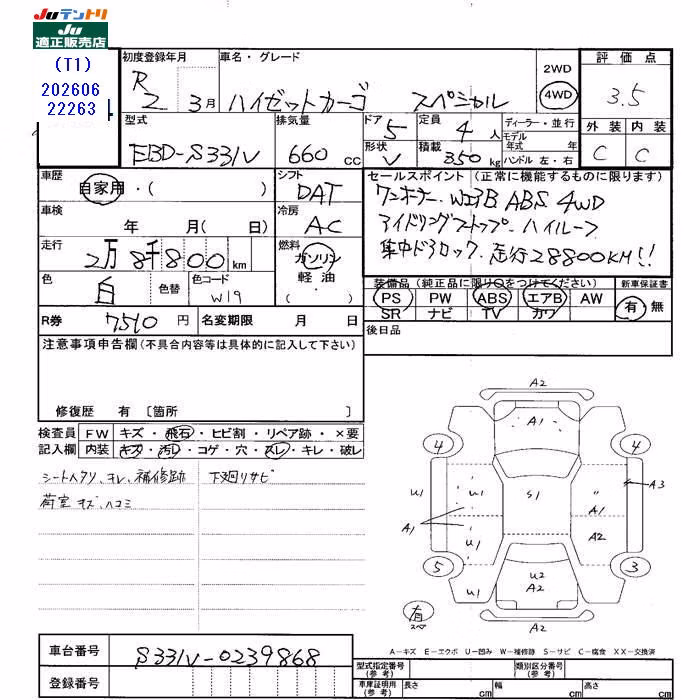 JUテントリ
JU
適正販売店
(T1)
202606
22263
初度登録年月
R
2 3月
車名・グレード
ハイゼットカーゴ スペシャル
2WD
4WD
評価点
3.5
外装 内装
C C
型式
EBD-S331V
排気量
660 CC
ドア 5
形状 V
定員 4人
積載 350 kg
ディーラー・並行
モデル
年式 年
ハンドル 左・右
車歴
自家用・( )
シフト
DAT
車検
年 月( 日)
冷房
AC
走行
2万8千800 km
燃料
ガソリン
軽油
( )
色
白
色替
色コード
W19
R券 7510 円
名変期限 月 日
セールスポイント (正常に機能するものに限ります)
ワンオーナー. W エアB ABS 4WD
アイドリングストップ. ハイルーフ
集中ドアロック. 走行28800KM!!
装備品(純正品に限り○をつけてください)
PS PW ABS エアB AW
SR ナビ TV カワ
新車保証書
有 無
後日品
注意事項申告欄(不具合内容等は具体的に記入して下さい)
修復歴 有 〔箇所 〕
検査員 FW キズ・飛石・ヒビ割・リペア跡・×要
記入欄 内装 キズ・汚レ・コゲ・穴・スレ・キレ・破レ
シートヘタリ、ヨレ、補修跡 下廻リサビ
荷室キズ、ヘコミ
A2
A1
4 4
U1 U1 S1 A1 A3
A1 U1 A2
5 3
U1 U2
A2
有
スペ
A2
A-キズ E-エクボ U-凹み W-補修跡 S-サビ C-腐食 XX-交換済
車台番号 S331V-0239868
登録番号
型式指定番号
(参考)
類別区分番号
(参考)
車庫証明用
(参考)
長さ cm 幅 cm 高さ cm